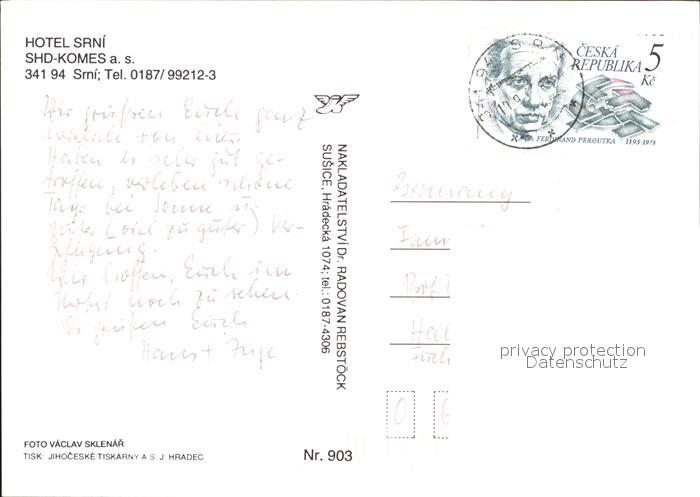 HOTEL SRNÍ
SHD-KOMES a. s.
341 94 Srní; Tel. 0187/ 99212-3
Wir grüßen Euch ganz
herzlich von hier.
Haben es sehr gut ge-
troffen, verleben schöne
Tage bei Sonne u.
guter (viel zu guter) Ver-
pflegung.
Wir hoffen, Euch im
Herbst noch zu sehen.
Es grüßen Euch
Hans + Inge
FOTO VÁCLAV SKLENÁŘ
TISK: JIHOČESKÉ TISKÁRNY A S. J. HRADEC
Nr. 903
NAKLADATELSTVÍ Dr. RADOVAN REBSTÖCK
SUŠICE, Hrádecká 1074; tel.: 0187-4306
ČESKÁ
REPUBLIKA 5
Kč
FERDINAND PEROUTKA - 1895-1978
Germany
Prof.
privacy protection
Datenschutz